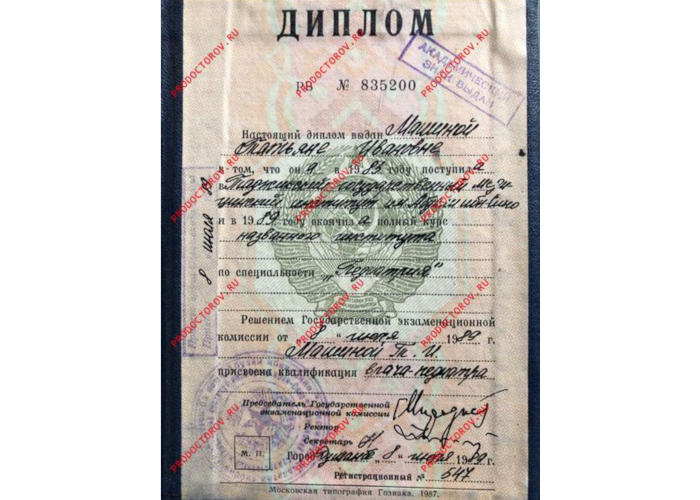 ДИПЛОМ
АКАДЕМИЧЕСКИЙ
ЗНАК ВЫДАН
РВ № 835200
Настоящий диплом выдан Машиной
Татьяне Ивановне
в том, что она в 1983 году поступила
в Таджикский государственный меди-
цинский институт им. Абуали ибн Сино
и в 1989 году окончила полный курс
названного института
по специальности „Педиатрия"
Решением Государственной экзаменационной
комиссии от „8" июля 1989 г.
Машиной Т. И.
присвоена квалификация врача-педиатра
Председатель Государственной
экзаменационной комиссии
Ректор
Секретарь
М. П.
Город Душанбе „8" июля 1989 г.
Регистрационный № 547
Московская типография Гознака. 1987.
8 июля 89
PRODOCTOROV.RU
PRODOCTOROV.RU
PRODOCTOROV.RU
PRODOCTOROV.RU
PRODOCTOROV.RU
PRODOCTOROV.RU
PRODOCTOROV.RU
PRODOCTOROV.RU
PRODOCTOROV.RU
PRODOCTOROV.RU
PRODOCTOROV.RU
PRODOCTOROV.RU